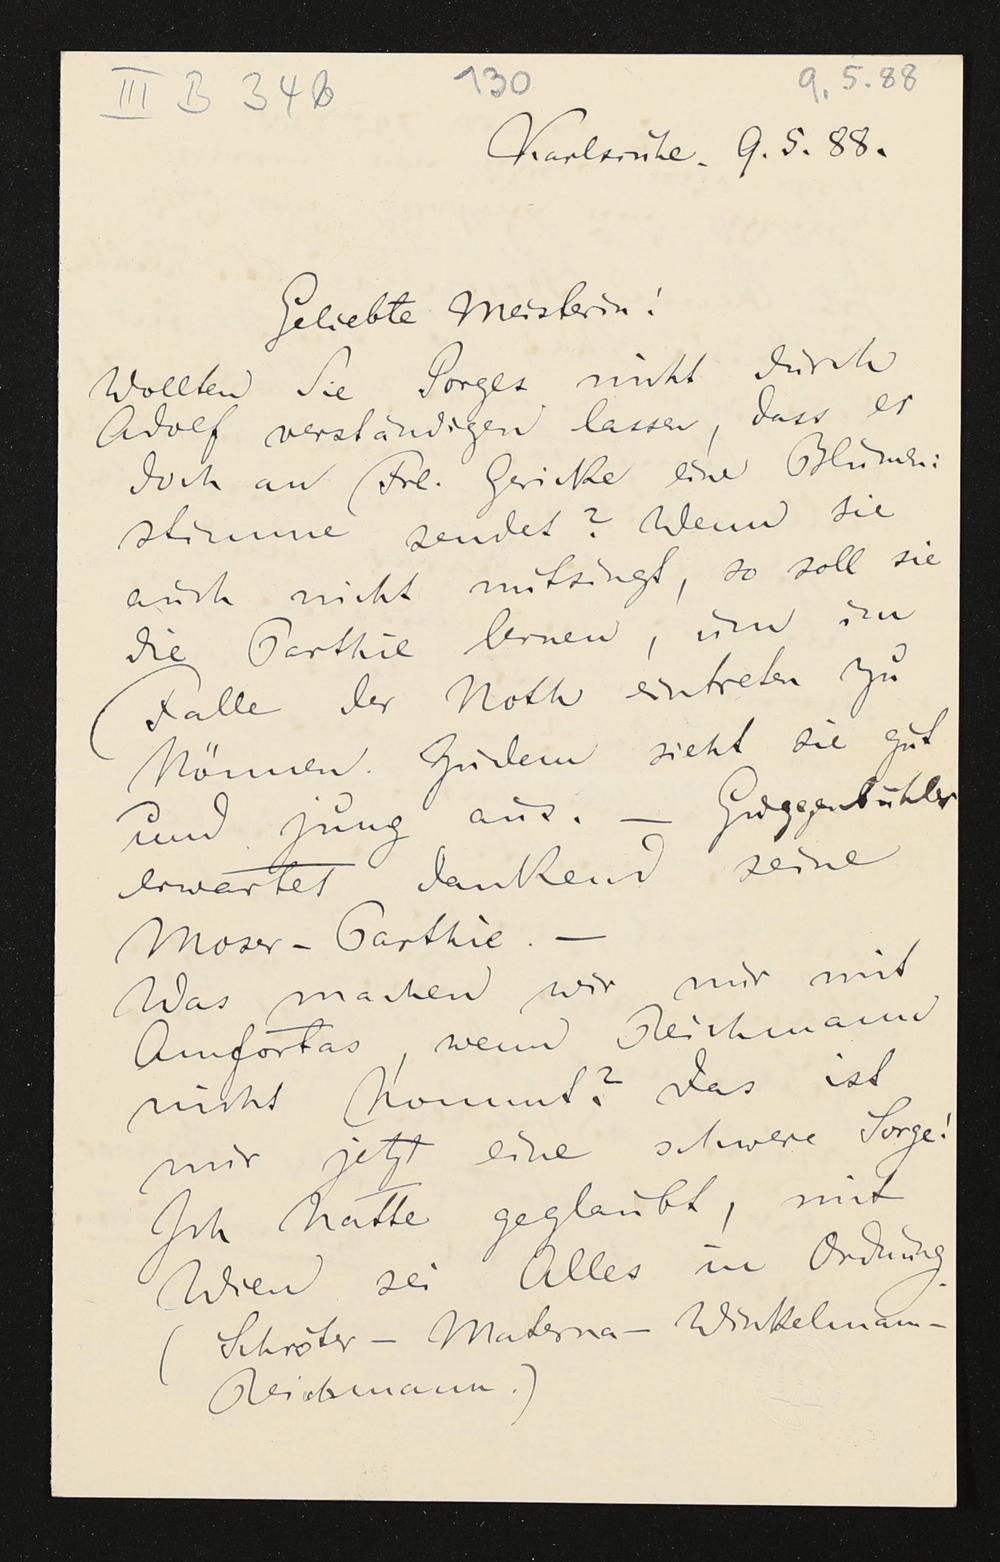 III B 34b 130 9.5.88
Karlsruhe. 9.5.88.
Geliebte Meisterin!
Wollten Sie Porges nicht durch
Adolf verständigen lassen, dass er
doch an Frl. Gericke eine Blumen:
stimme sendet? Wenn sie
auch nicht mitsingt, so soll sie
die Parthie lernen, um im
Falle der Noth eintreten zu
können. Zudem sieht sie gut
und jung aus. — Guggenbühler
erwartet dankend seine
Moser-Parthie. —
Was machen wir nur mit
Amfortas, wenn Reichmann
nicht kommt? Das ist
mir jetzt eine schwere Sorge!
Ich hatte geglaubt, mit
Wien sei Alles in Ordnung.
(Schröter - Materna - Winkelmann-
Reichmann.)